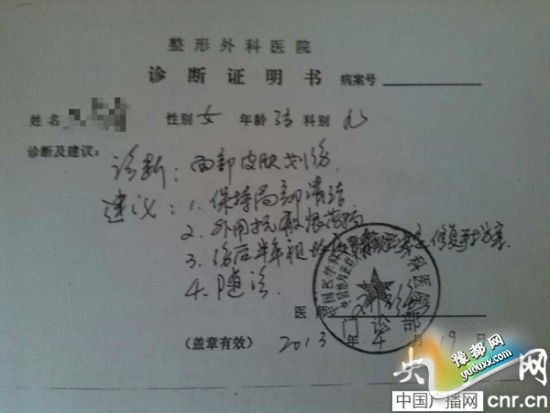 整形外科医院
诊断证明书 病案号
姓名 性别 女 年龄 科别
诊断及建议：
诊断：面部皮肤划伤
建议：1. 保持局部清洁
2. 外用抗瘢痕药物
3. 伤后半年
4. 随诊
医师
门诊部
(盖章有效) 2013 年 月 19 日
豫都网
yuduxx.com
央广网
中国广播网 cnr.cn